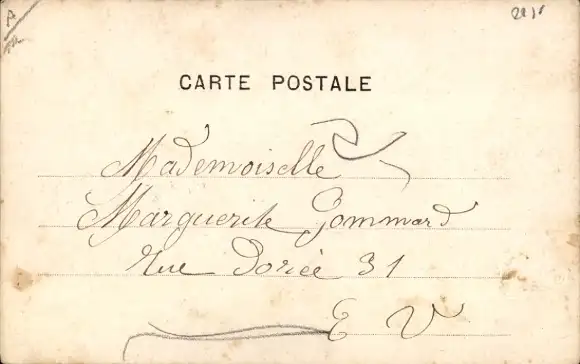 CARTE POSTALE
Mademoiselle
Marguerite Gommard
rue Dorée 31
E V